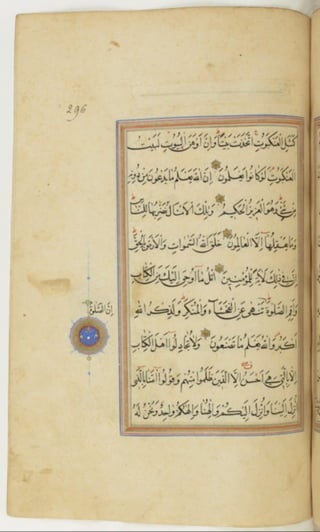 296
كَمَثَلِ الْعَنْكَبُوتِ اتَّخَذَتْ بَيْتًا وَإِنَّ أَوْهَنَ الْبُيُوتِ لَبَيْتُ
الْعَنْكَبُوتِ لَوْ كَانُوا يَعْلَمُونَ إِنَّ اللّٰهَ يَعْلَمُ مَا يَدْعُونَ مِنْ دُونِهِ
مِنْ شَيْءٍ وَهُوَ الْعَزِيزُ الْحَكِيمُ وَتِلْكَ الْأَمْثَالُ نَضْرِبُهَا لِلنَّاسِ
وَمَا يَعْقِلُهَا إِلَّا الْعَالِمُونَ خَلَقَ اللّٰهُ السَّمٰوَاتِ وَالْأَرْضَ بِالْحَقِّ
إِنَّ فِي ذٰلِكَ لَآيَةً لِلْمُؤْمِنِينَ اتْلُ مَا أُوحِيَ إِلَيْكَ مِنَ الْكِتَابِ
وَأَقِمِ الصَّلٰوةَ إِنَّ الصَّلٰوةَ تَنْهٰى عَنِ الْفَحْشَاءِ وَالْمُنْكَرِ وَلَذِكْرُ اللّٰهِ
أَكْبَرُ وَاللّٰهُ يَعْلَمُ مَا تَصْنَعُونَ وَلَا تُجَادِلُوا أَهْلَ الْكِتَابِ
إِلَّا بِالَّتِي هِيَ أَحْسَنُ إِلَّا الَّذِينَ ظَلَمُوا مِنْهُمْ وَقُولُوا آمَنَّا بِالَّذِي
أُنْزِلَ إِلَيْنَا وَأُنْزِلَ إِلَيْكُمْ وَإِلٰهُنَا وَإِلٰهُكُمْ وَاحِدٌ وَنَحْنُ لَهُ